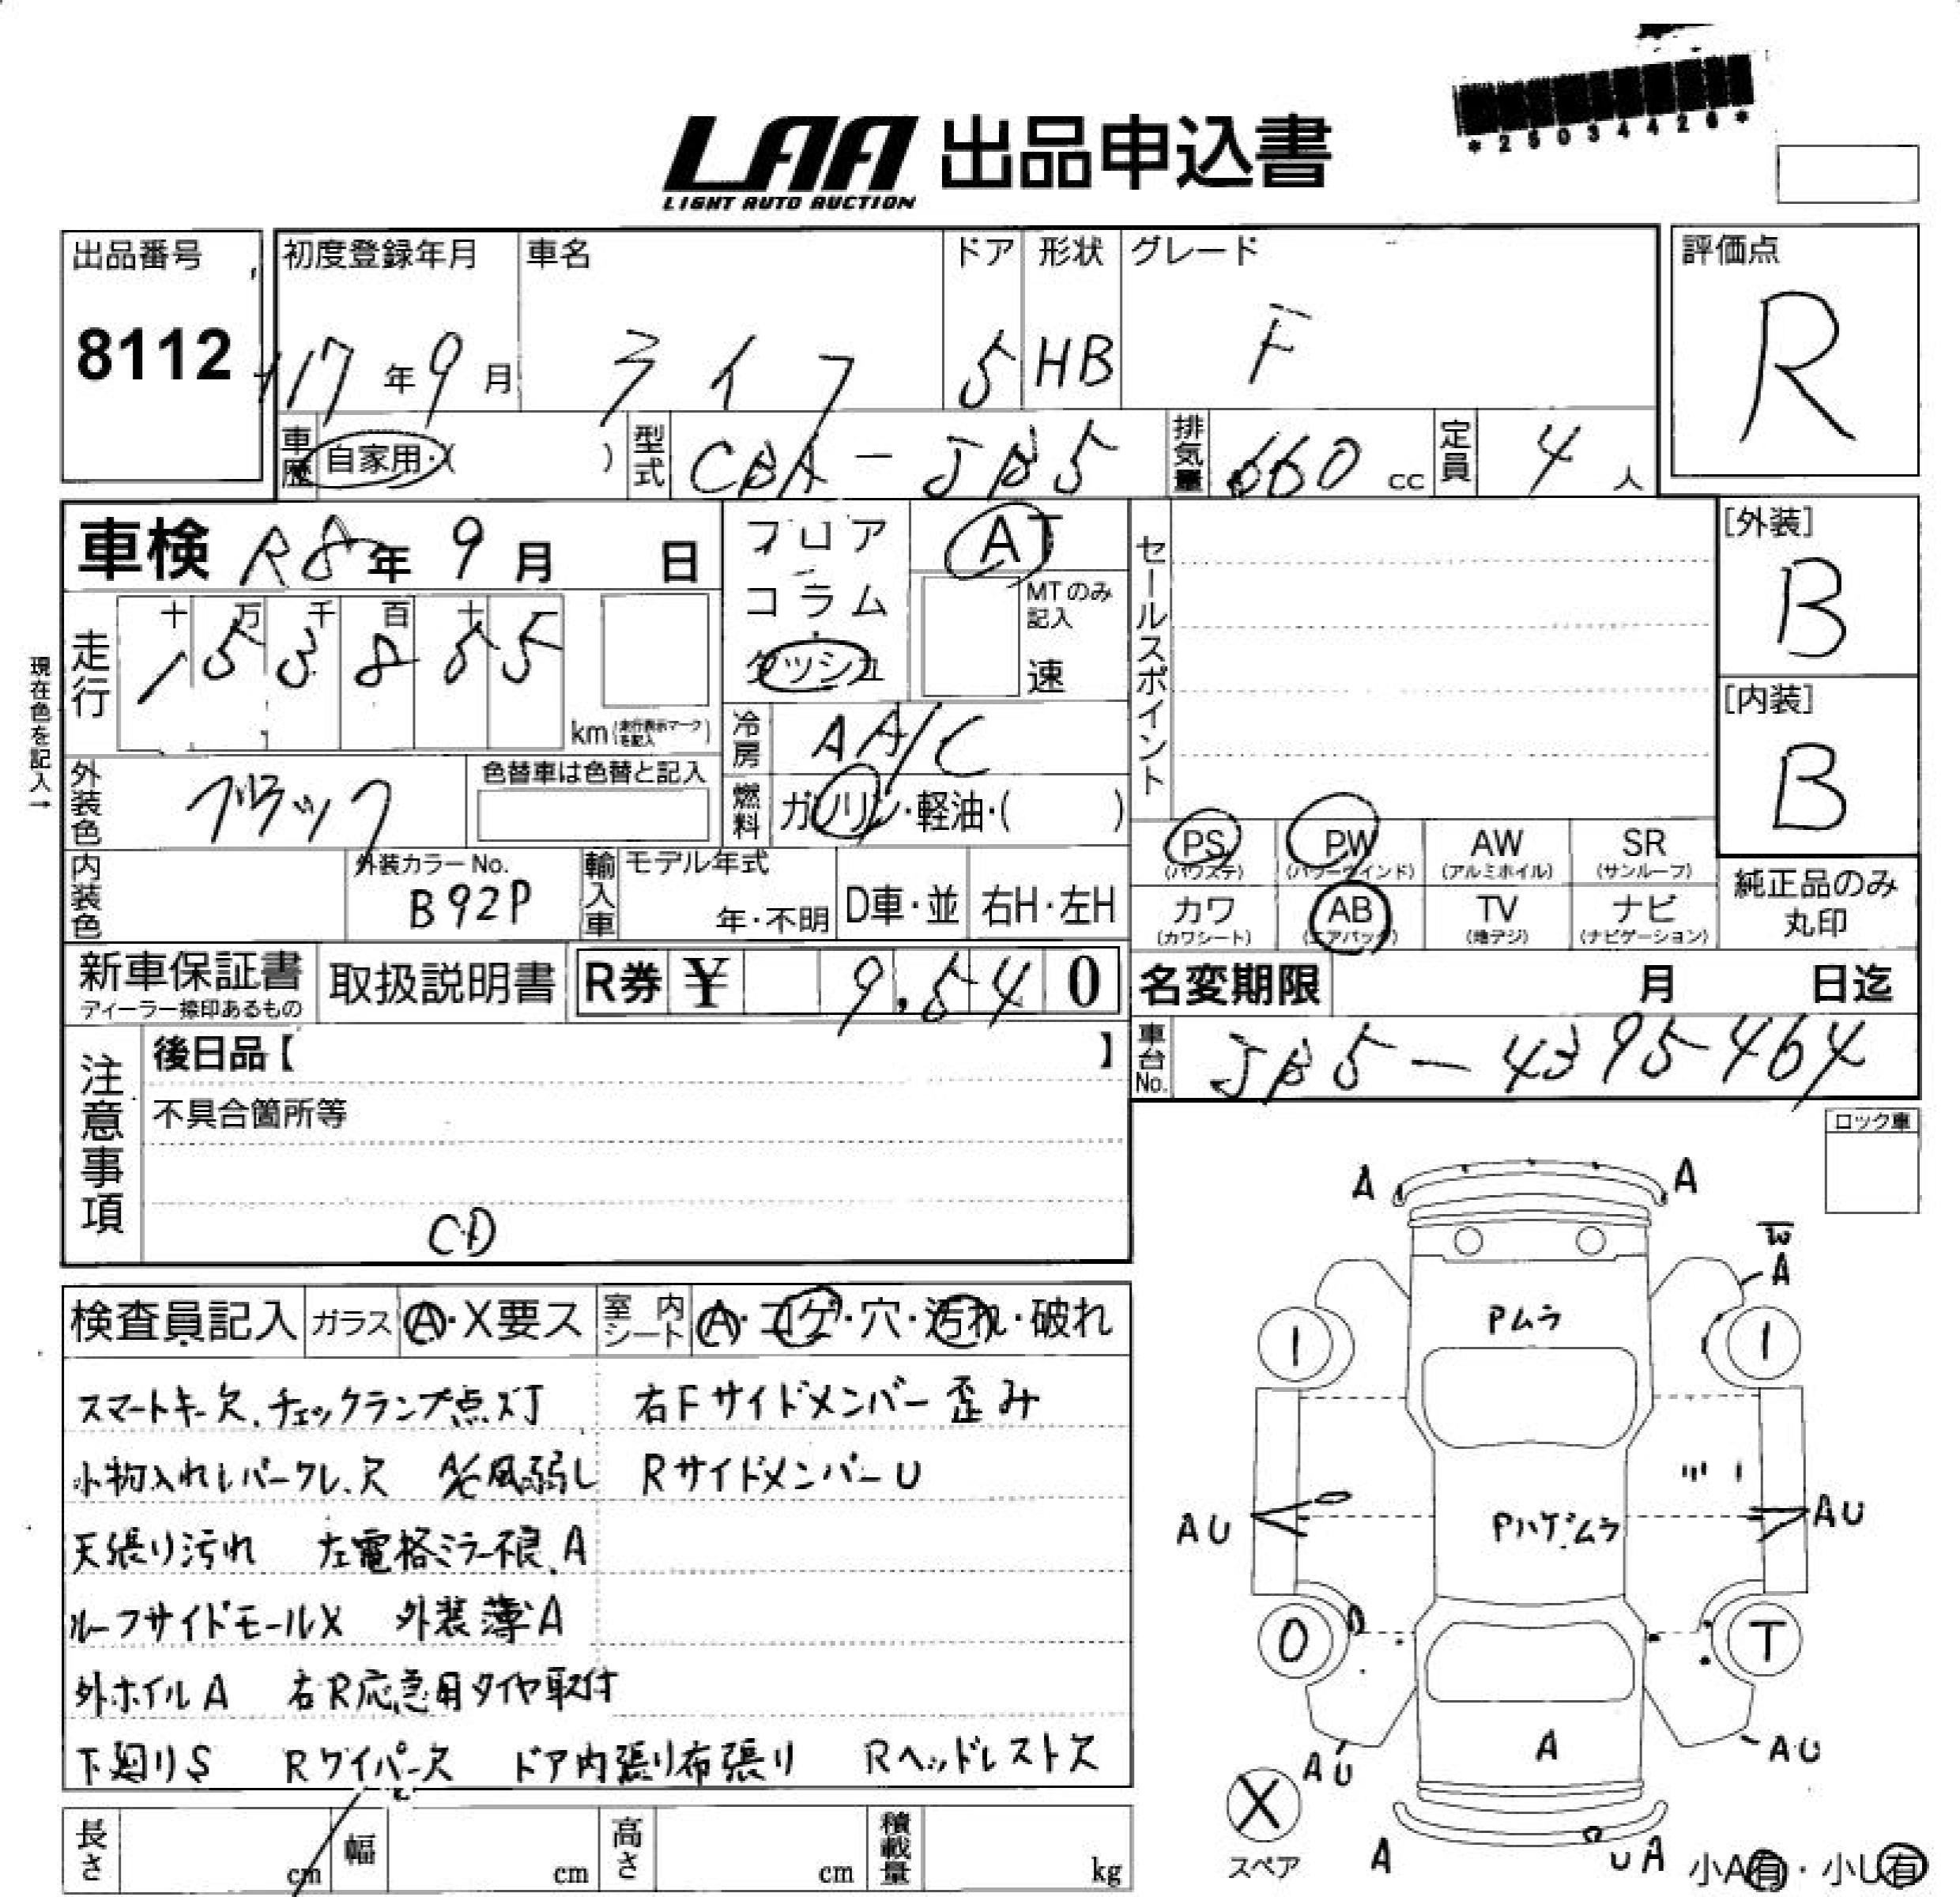 *25034426*
LAA 出品申込書
LIGHT AUTO AUCTION
出品番号
8112
初度登録年月
17年9月
車名
ライフ
ドア
5
形状
HB
グレード
F
評価点
R
車歴
自家用・( )
型式
CBA-JB5
排気量
660 cc
定員
4人
車検 R8年9月 日
フロア
コラム
ダッシュ
AT
MTのみ記入
速
セールスポイント
[外装]
B
[内装]
B
現在色を記入→
走行
十万千百十
153855
km(走行表示マークを記入)
冷房
AA/C
外装色
ブラック
色替車は色替と記入
燃料
ガソリン・軽油・( )
PS
(パワステ)
PW
(パワーウインド)
AW
(アルミホイル)
SR
(サンルーフ)
内装色
外装カラーNo.
B92P
輸入車
モデル年式
年・不明
D車・並
右H・左H
カワ
(カワシート)
AB
(エアバッグ)
TV
(地デジ)
ナビ
(ナビゲーション)
純正品のみ
丸印
新車保証書
ディーラー捺印あるもの
取扱説明書
R券 ¥ 9,540
名変期限 月 日迄
注意事項
後日品【 】
車台No.
JB5-4395464
不具合箇所等
CD
ロック車
検査員記入
ガラス
A・X要ス
室内シート
A・コゲ・穴・汚れ・破れ
スマートキー欠、チェックランプ点灯 右Fサイドメンバー歪み
小物入れレバークレ、欠 A/C風弱し RサイドメンバーU
天張り汚れ 左電格ミラー不良、A
ルーフサイドモールX 外装薄A
外ホイルA 右R応急用タイヤ取付
下廻りS Rワイパー欠 ドア内張り布張り Rヘッドレスト欠
長さ cm
幅 cm
高さ cm
積載量 kg
A
A
W
A
Pムラ
1
1
AU
Pハゲムラ
AU
0
T
A
AU
AU
X
スペア
A
UA
小A有・小U有